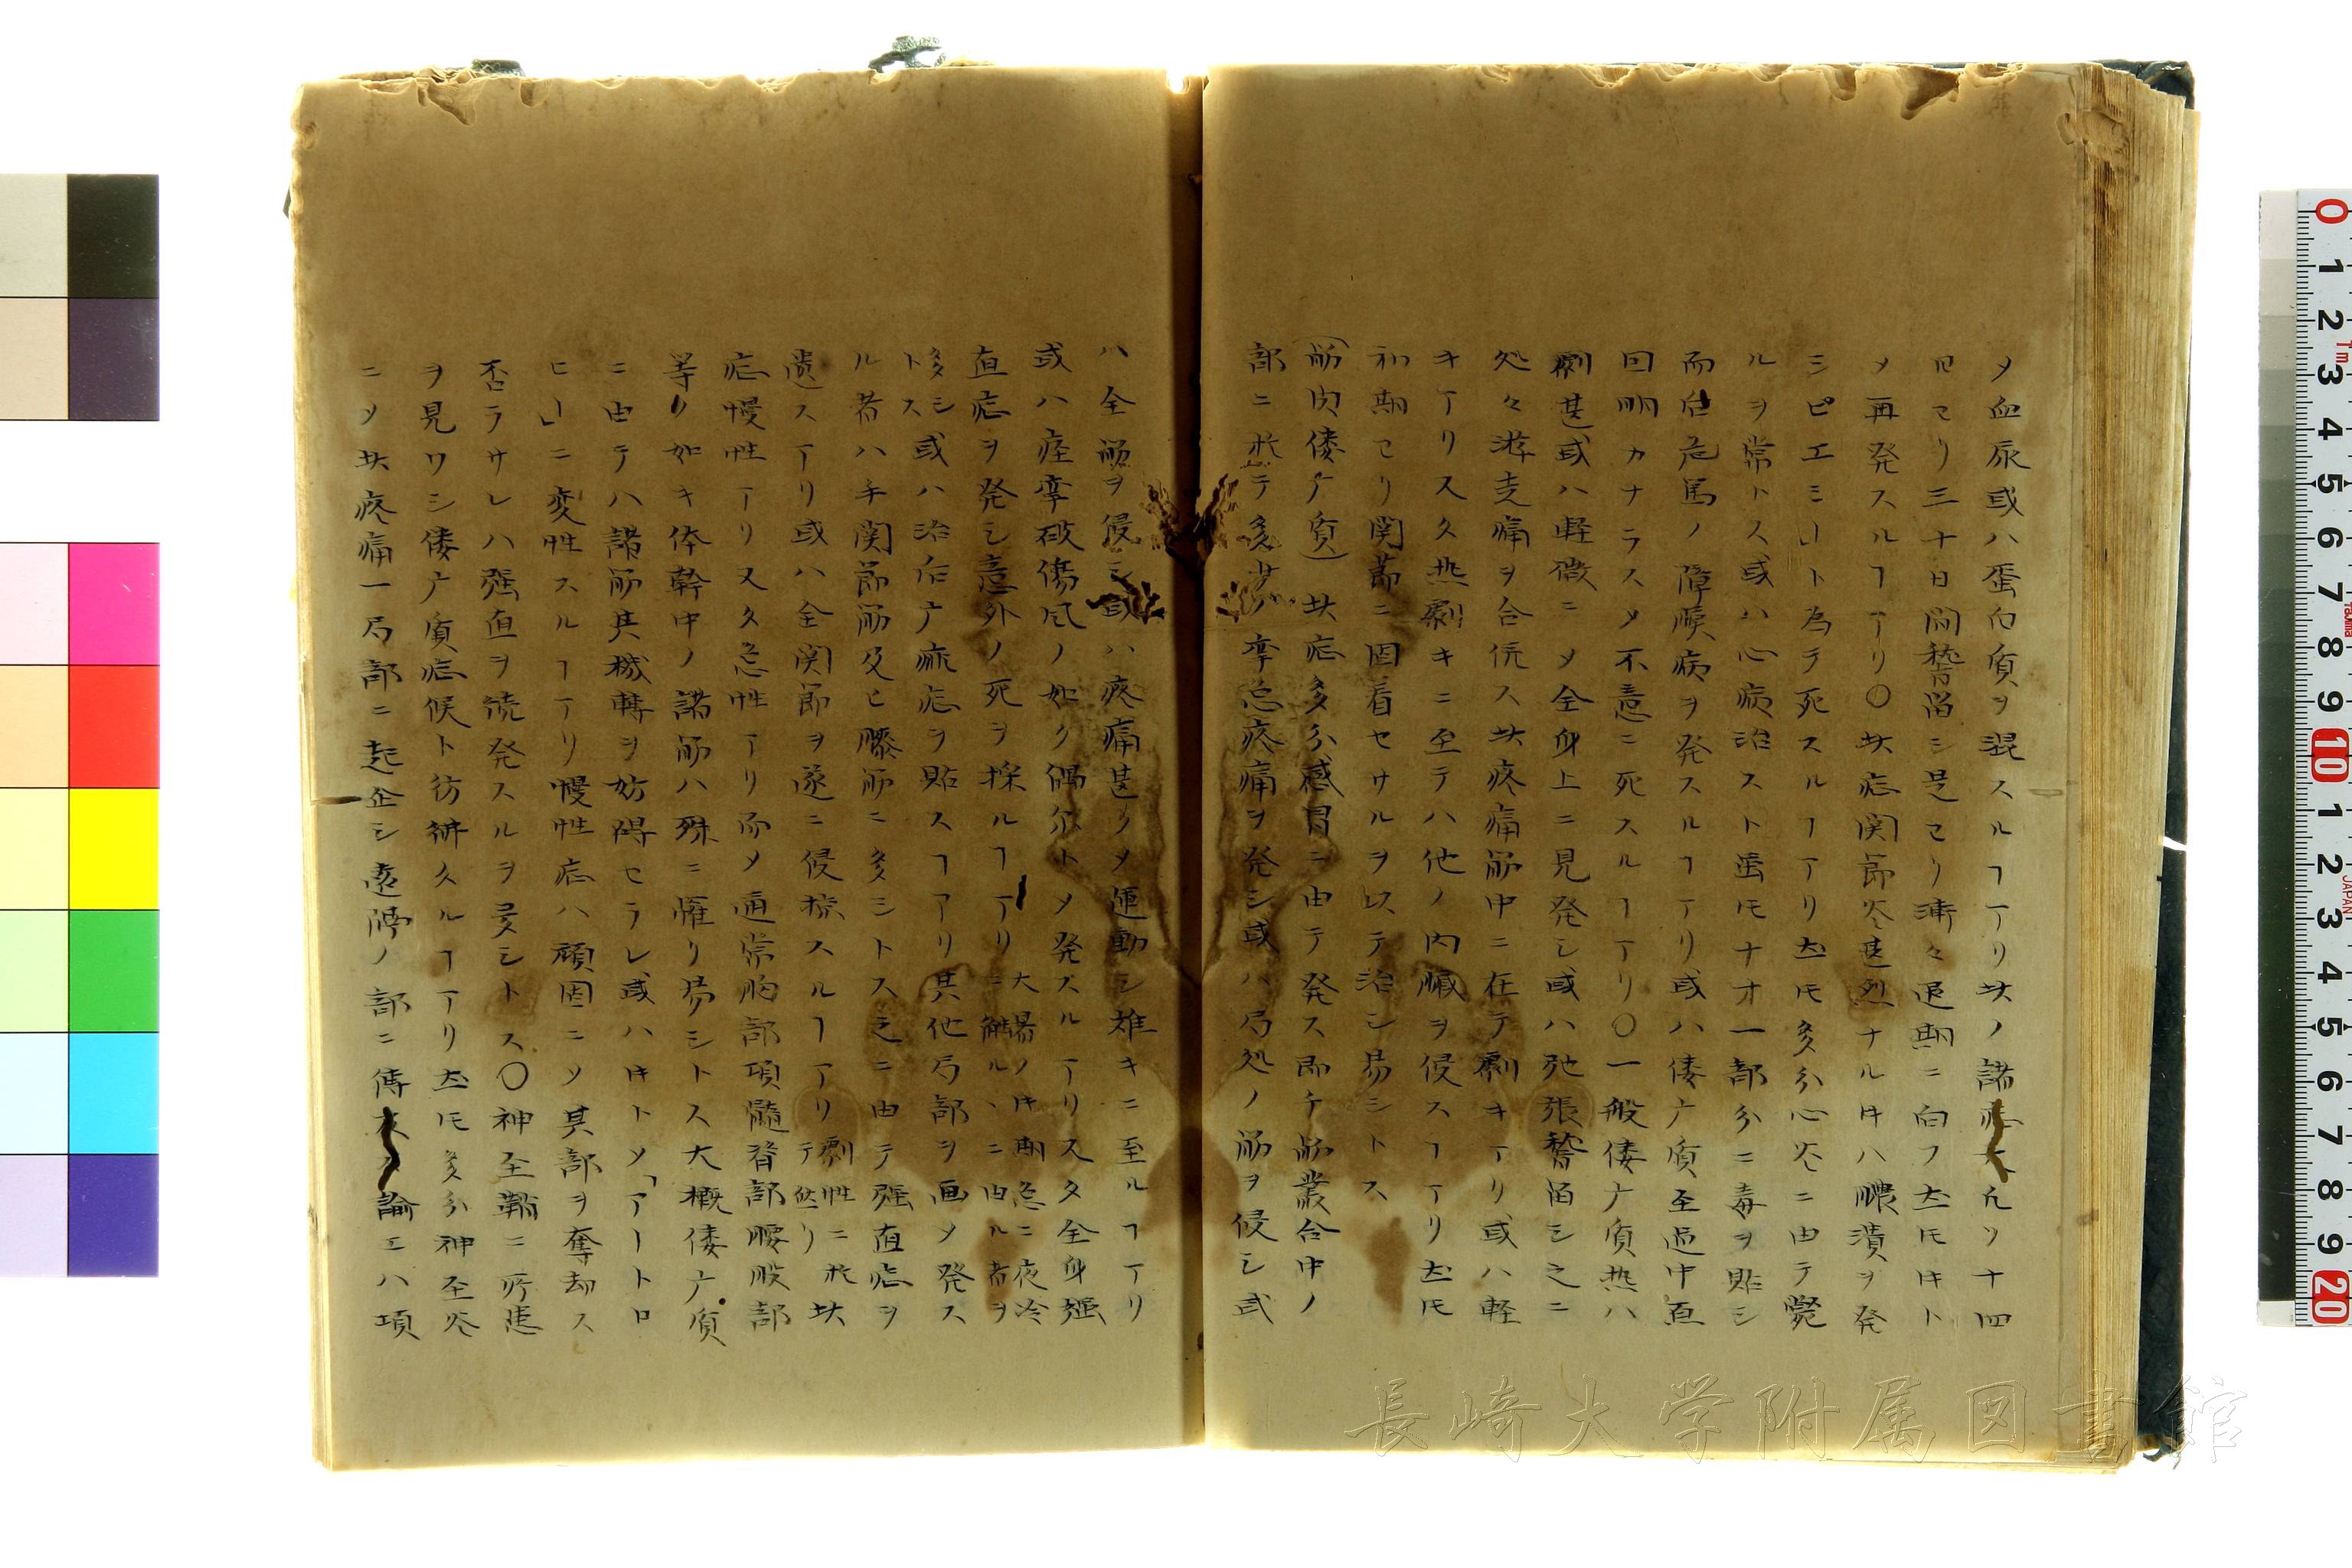 メ血尿或ハ蛋白質ヲ混スルヿアリ此ノ諸症大凡ソ十四
日ヨリ三十日間稽留シ是ヨリ漸々退期ニ向フ𪜈時ト
メ再発スルヿアリ〇此症関節炎甚烈ナル時ハ膿潰ヲ発
シピエミー」ト為テ死スルヿアリ𪜈多分心炎ニ由テ斃
ルヲ常トス或ハ心病治スト雖モナオ一部分ニ毒ヲ貼シ
而后危篤ノ障碍病ヲ発スルヿアリ或ハ僂广質至過中
因明カナラスメ不意ニ死スルヿアリ〇一般僂广質熱ハ
劇甚或ハ軽微ニメ全身上ニ見発シ或ハ弛張稽留シ之ニ
処々遊走痛ヲ合併ス此疼痛筋中ニ在テ劇キアリ或ハ軽
キアリ又タ熱劇キニ至テハ他ノ内臓ヲ侵スヿアリ𪜈
初期ヨリ関節ニ固着セサルヲ以テ治シ易シトス
(筋肉僂广質)此症多分感冒ニ由テ発ス即チ筋叢合中ノ
部ニ於テ多少ノ攣急疼痛ヲ発シ或ハ局処ノ筋ヲ侵シ或
ハ全筋ヲ侵シ或ハ疼痛甚クメ運動シ難キニ至ルヿアリ
或ハ痙攣破傷風ノ如ク偶尓トメ発スルアリ又タ全身強
直症ヲ発シ意外ノ死ヲ採ルヿアリ
大暑ノ時期急ニ夜冷
ニ触ルヽニ由ル者ヲ
多シ
トス
或ハ治后广痲症ヲ貼スヿアリ其他局部ヲ画メ発ス
ル者ハ手関節筋及ヒ膝筋ニ多シトス之ニ由テ強直症ヲ
遺スアリ或ハ全関節ヲ遂ニ侵掠スルヿアリ
劇性ニ於
テ然リ
此
症慢性アリ又タ急性アリ而メ通常胸部項髄脊部腰股部
等ノ如キ体幹中ノ諸筋ハ殊ニ罹リ易シトス大概僂广質
ニ由テハ諸筋其機轉ヲ妨碍セラレ或ハ時トメ「アートロ
ヒー」ニ変性スルヿアリ慢性症ハ頑固ニメ其部ヲ奪却ス
否ラサレハ強直ヲ続発スルヲ災シトス〇神至鞘ニ所患
ヲ見ワシ僂广質症候ト彷彿タルヿアリ𪜈多分神至炎
ニメ此疼痛一局部ニ起企シ遠隔ノ部ニ傳
論エハ項